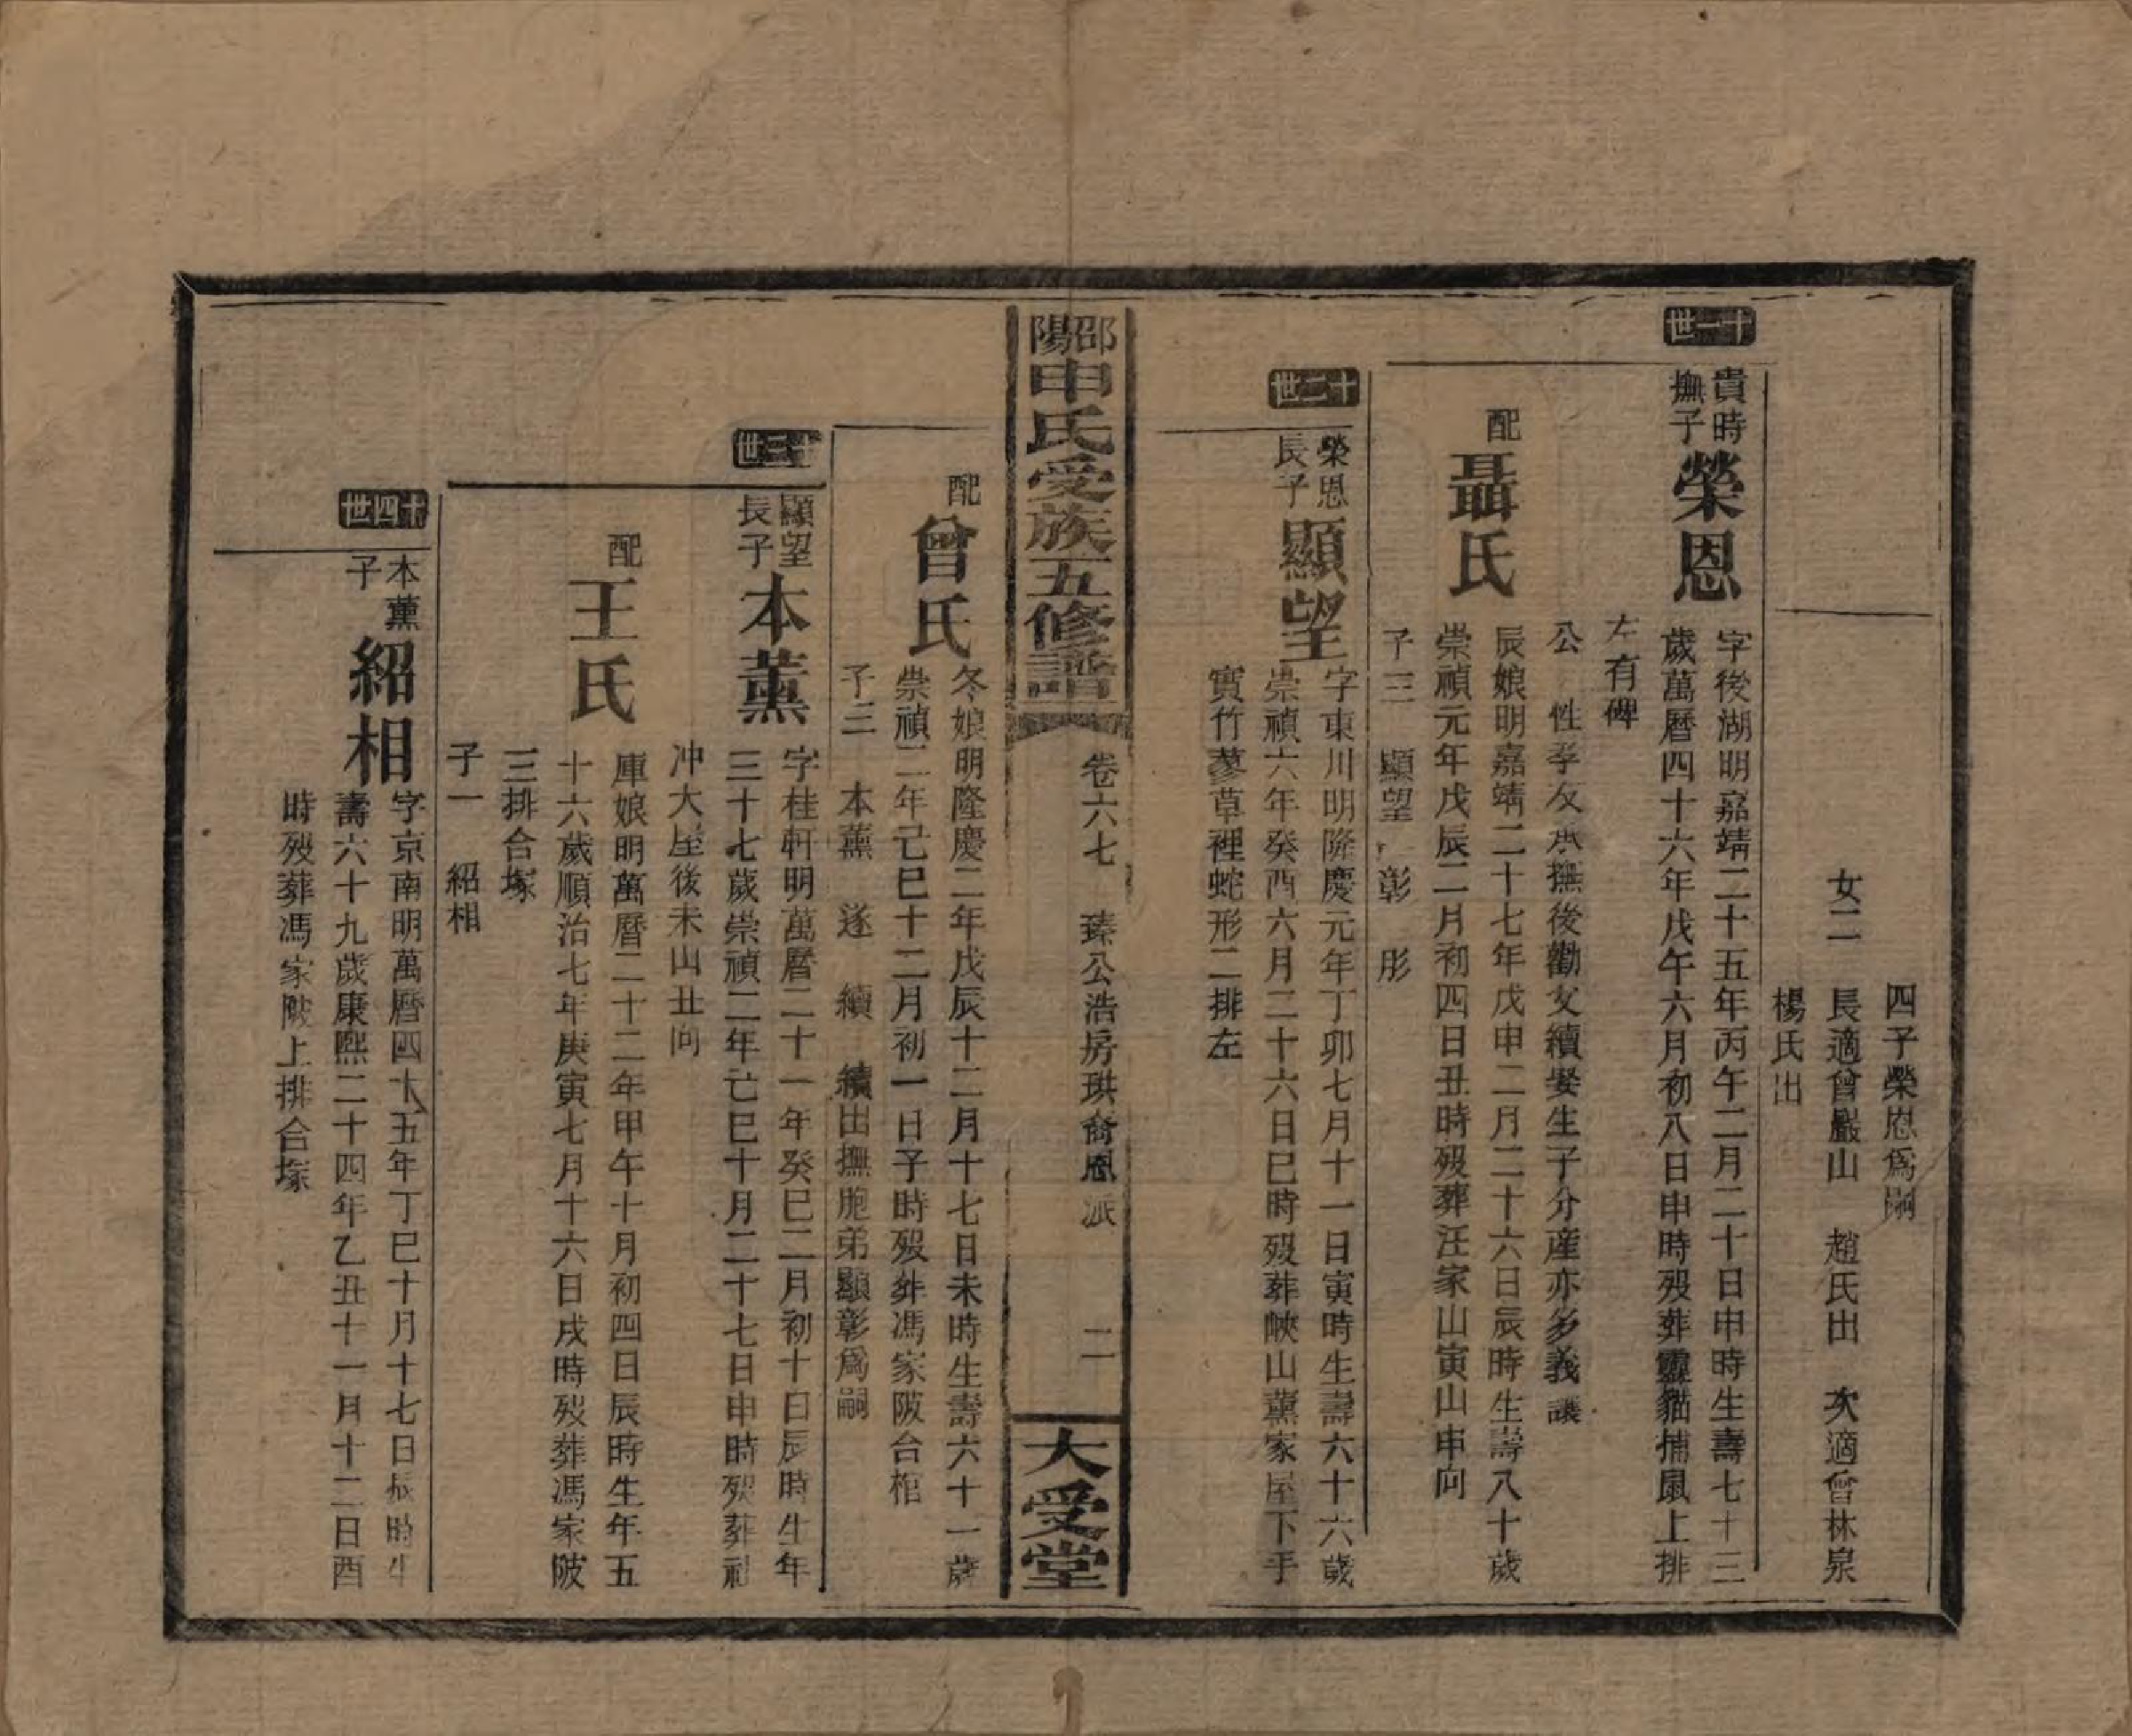 四子榮恩爲嗣
女二　長適曾巖山　趙氏出　次適曾林泉
楊氏出
十一世
貴時
撫子
榮恩
字後湖明嘉靖二十五年丙午二月二十日申時生壽七十三
歲萬曆四十六年戊午六月初八日申時殁葬靈貓捕鼠上排
左有碑
公　性孝友承撫後勸父續娶生子分産亦多義讓
配
聶氏
辰娘明嘉靖二十七年戊申二月二十六日辰時生壽八十歲
崇禎元年戊辰二月初四日丑時殁葬汪家山寅山申向
子三　顯望　彰　彤
十二世
榮恩
長子
顯望
字東川明隆慶元年丁卯七月十一日寅時生壽六十六歲
崇禎六年癸酉六月二十六日巳時殁葬峽山薰家屋下手
實竹蓼草裡蛇形二排左
邵陽申氏受族五修譜
卷六七　臻公浩房珙裔恩派
二
大受堂
配
曾氏
冬娘明隆慶二年戊辰十二月十七日未時生壽六十一歲
崇禎二年己巳十二月初一日子時殁葬馮家陂合棺
子三　本薰　遂　續　續出撫胞弟顯彰爲嗣
十三世
顯望
長子
本薰
字桂軒明萬曆二十一年癸巳二月初十日辰時生年
三十七歲崇禎二年己巳十月二十七日申時殁葬社
冲大屋後未山丑向
配
王氏
庫娘明萬曆二十二年甲午十月初四日辰時生年五
十六歲順治七年庚寅七月十六日戌時殁葬馮家陂
三排合塚
子一　紹相
十四世
本薰
子
紹相
字京南明萬曆四十五年丁巳十月十七日辰時生
壽六十九歲康熙二十四年乙丑十一月十二日酉
時殁葬馮家陂上排合塚